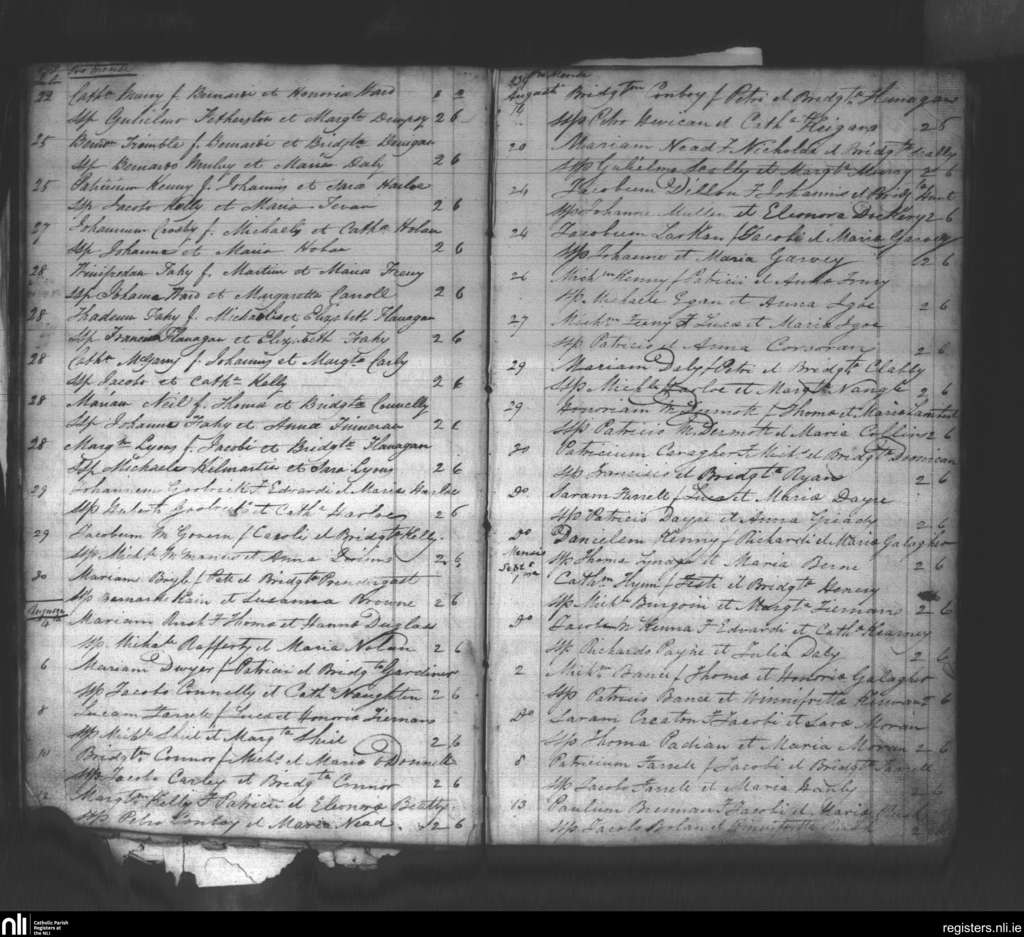 22 Cathn Murry f. Bernardi et Honoria Ward
Ssp Gulielmo Fetherston et Margta Dempsy 2 6
25 Trimble f. Bernardi et Bridgta
Ssp Bernardo et Maria Daly 2 6
25 Patricium Kenny f. Johannis et Sara Harloe
Ssp Jacobo Kelly et Maria 2 6
27 Johannem Crosby f. Michaelis et Cathn Holan
Ssp Johanne et Maria Holan 2 6
28 Winifredam Fahy f. Martini et Maria Treny
Ssp Johanne Ward et Margaretta Carroll 2 6
28 Thadeum Fahy f. Michaelis et Elizabeth Flanagan
Ssp Francisco Flanagan et Elizabeth Fahy 2 6
28 Cathn McGarry f. Johannis et Margta Carly
Ssp Jacobo et Cathn Kelly 2 6
28 Mariam Neil f. Thoma et Bridgta Connelly
Ssp Johanne Fahy et Anna Finneran 2 6
28 Margtm Lyons f. Jacobi et Bridgta Flanagan
Ssp Michaele Kilmartin et Sara Lyons 2 6
29 Johannem F Edvardi et Maria Harloe
Ssp et Catha Harloe 2 6
29 Jacobum McGovern f Caroli et Bridgta Kelly
Ssp. Michle McManus et Anna 2 6
30 Mariam Boyle f Petri et Bridgta Prendirgast
Ssp Bernardo Kain et Susanna Browne 2 6
August
4th Mariam Rush F Thoma et Hanna Duglass
Ssp. Michle Rafferty et Maria Nolan 2 6
6 Mariam Dwyer f Patricii et Bridgta Gardiner
Ssp Jacobo Connelly et Catha Naughten 2 6
8 Lucam Farrele f Luca et Honoria Tiernans
Ssp Michle Shiel et Margta Shiel 2 6
10 Bridgtm Connor f Michs et Maria O Donnell
Ssp Jacobo Carley et Bridgta Connor 2 6
12 Margtm Kelly F Patricii et Eleonora Beatty
Ssp Petro Conboy et Maria Nead 2 6
August
14 Bridgtm Conboy f Petri et Bridgta Flanagan
Ssp Petro et Catha Heigans 2 6
20 Mariam Nead F Nicholai et Bridgta Scally
Ssp Gulielmo Scally et Margta Murray 2 6
24 Jacobum Dillon F Johannis et Bridgta Hunt
Ssp Johanne Mullen et Eleonora Dickeny 2 6
24 Jacobum Larkan f Jacobi et Maria Garvey
Ssp Johanne et Maria Garvey 2 6
26 Michm Kenny f Patricii et Anna
Ssp Michaele Egan et Anna Igoe 2 6
27 Michm Feeny F Luca et Maria Igoe
Ssp Patricio et Anna Corcoran 2 6
29 Mariam Daly f Petri et Bridgta Clabby
Ssp Michle Harloe et Margta 2 6
29 Honoriam McDermott f Thoma et Maria
Ssp Patricio McDermott et Maria Collins 2 6
30 Patricium Caragher F Michs et Bridgta Dominican
Ssp Francisco et Bridgta Ryan 2 6
Do Saram Farrele f Luca et Maria Dayre
Ssp Patricio Dayre et Anna Gready 2 6
Do Danielem Kenny f Richardi et Maria Galagher
Ssp Thoma et Maria Berne 2 6
Mensis
Septs
1ma Catham Flynn f Festi et Bridgta Henery
Ssp Michle Burgoin et Margta Tiernans 2 6
Do Jacobm McKenna F Edvardi et Catha Kearney
Ssp Richardo Payne et Julia Daly 2 6
2 Michm Banci f Thoma et Honoria Galagher
Ssp Patricio Bance et Winnifritta 2 6
Do Saram Creaton F Jacobi et Sara Moran
Ssp Thoma Padian et Maria Moran 2 6
8 Patricium Farrele f Jacobi et Bridgta Farrell
Ssp Jacobo Farrele et Maria Hanly 2 6
13 Paulum Brennan F Jacobi et Maria
Ssp Jacobo Bolan et Winnifritta 2
nli
Catholic Parish
Registers at
the NLI
registers.nli.ie